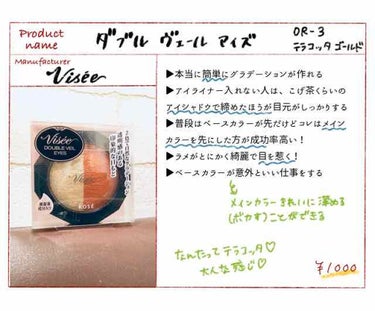 Product name
ダブル ヴェール アイズ
OR-3
テラコッタ ゴールド
Manufacturer
Visée
▶本当に簡単にグラデーションが作れる
▶アイライナー入れない人は、こげ茶くらいの
アイシャドウで締めたほうが目元がしっかりする
▶普段はベースカラーが先だけどコレはメイン
カラーを先にした方が成功率高い！
▶ラメがとにかく綺麗で目を惹く！
▶ベースカラーが意外といい仕事をする
メインカラーきれいに深める
(ボカす)ことができる
なんたってテラコッタ♡
大人な感じ♡
¥1000
Visée
DOUBLE VEIL
EYES
KOSÉ